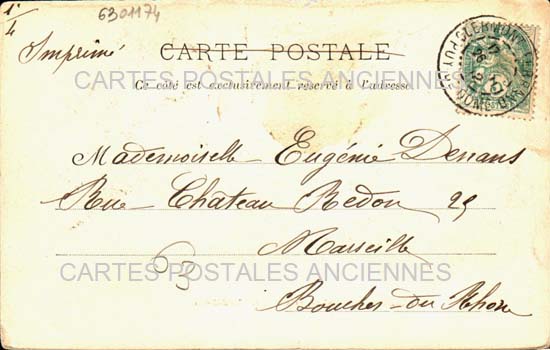 1r
4
6301174
Imprimé
CARTE POSTALE
CARTES POSTALES ANCIENNES
Ce côté est exclusivement réservé à l'adresse
CLERMONT
PUY-DE-DOME
Mademoiselle Eugénie Denans
Rue Chateau Redon 25
Marseille
63
CARTES POSTALES ANCIENNES
Bouches-du-Rhône